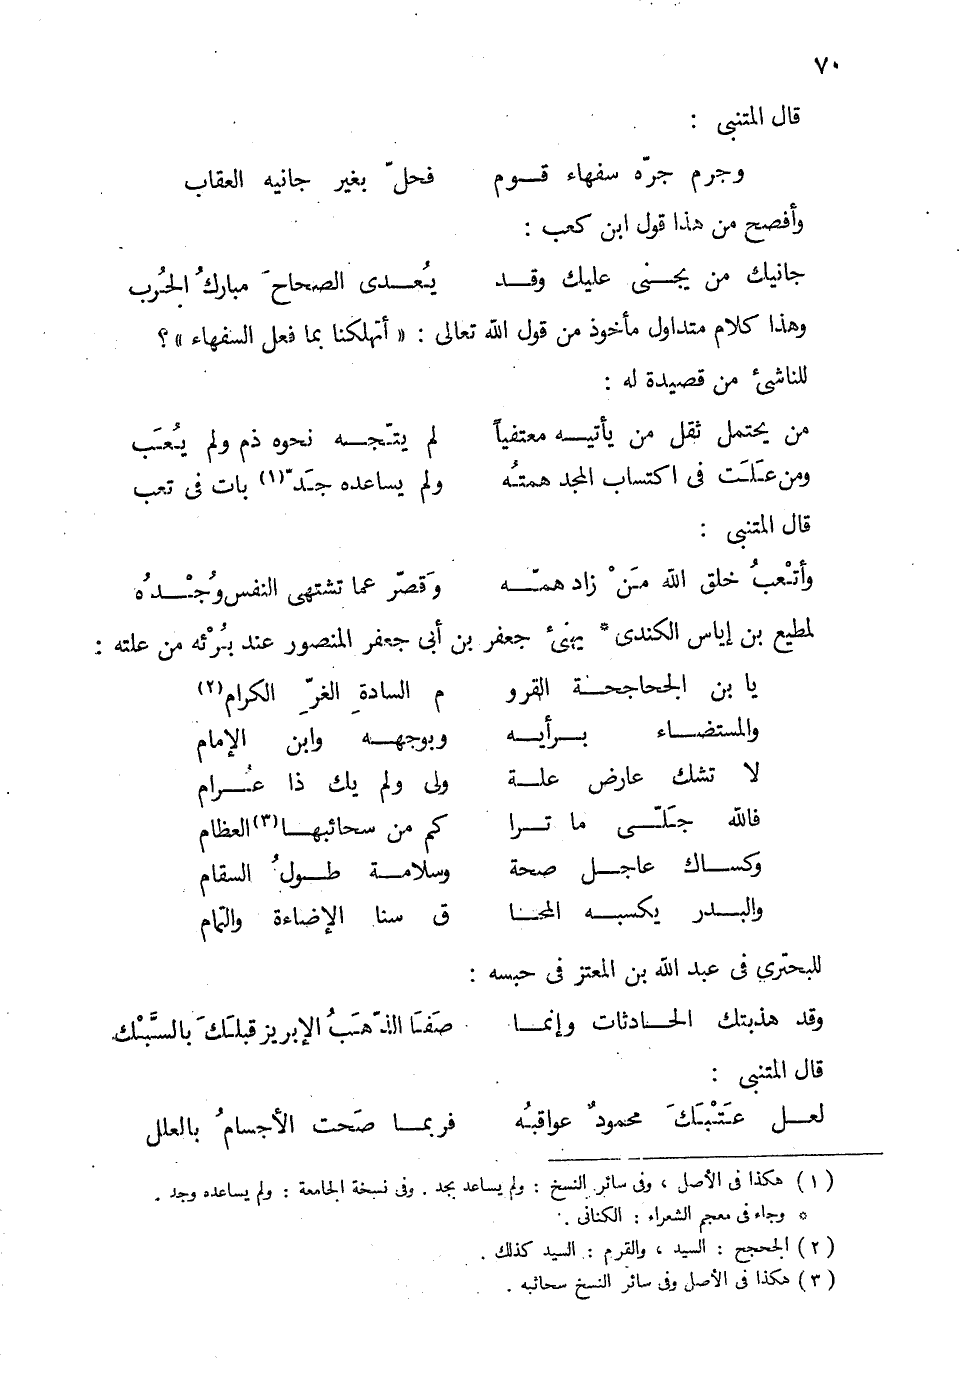 ٧٠
قال المتنبى :
وجرم جرّه سفهاء قــوم فحلّ بغير جانيه العقاب
وأفصح من هذا قول ابن كعب :
جانيك من يجــنى عليك وقــد يُعــدى الصحاحَ مباركُ الجُرب
وهذا كلام متداول مأخوذ من قول الله تعالى : « أتهلكنا بما فعل السفهاء » ؟
للناشئ من قصيدة له :
من يحتمل ثقل من يأتيــه معتفياً لم يتّجــه نحوه ذم ولم يُعَب
ومن عَلَت فى اكتساب المجد همتُه ولم يساعده جَدّ (١) بات فى تعب
قال المتنبى :
وأتْعبُ خلق الله مَنْ زاد همّــه وَقصّر عما تشتهى النفس وُجْــدُه
لمطيع بن إياس الكندى * يهنئ جعفر بن أبى جعفر المنصور عند بُرْئه من علته :
يا بن الجحاجحــة القرو م السادةِ الغرِّ الكرام (٢)
والمستضــاء بــرأيــه وبوجهــه وابن الإمام
لا تشك عارض علــة ولى ولم يك ذا عُــرام
فالله جَلّــى ما تــرا كم من سحائبهــا (٣) العظام
وكســاك عاجــل صحة وسلامــة طــولُ السقام
والبــدر يكسبــه المحــا ق سنا الإضاءة والتمام
للبحتري فى عبد الله بن المعتز فى حبسه :
وقد هذبتك الحــادثات وإنمــا صَفَا الذّهَبُ الإبريز قبلَكَ بالسَّبْك
قال المتنبى :
لعــل عَتْبَكَ محمودٌ عواقبُه فربمــا صَحت الأجسامُ بالعلل
( ١ ) هكذا فى الأصل ، وفى سائر النسخ : ولم يساعد بجد . وفى نسخة الجامعة : ولم يساعده وجد .
* وجاء فى معجم الشعراء : الكنانى .
( ٢ ) الجحجح : السيد ، والقرم : السيد كذلك .
( ٣ ) هكذا فى الأصل وفى سائر النسخ سحائبه .